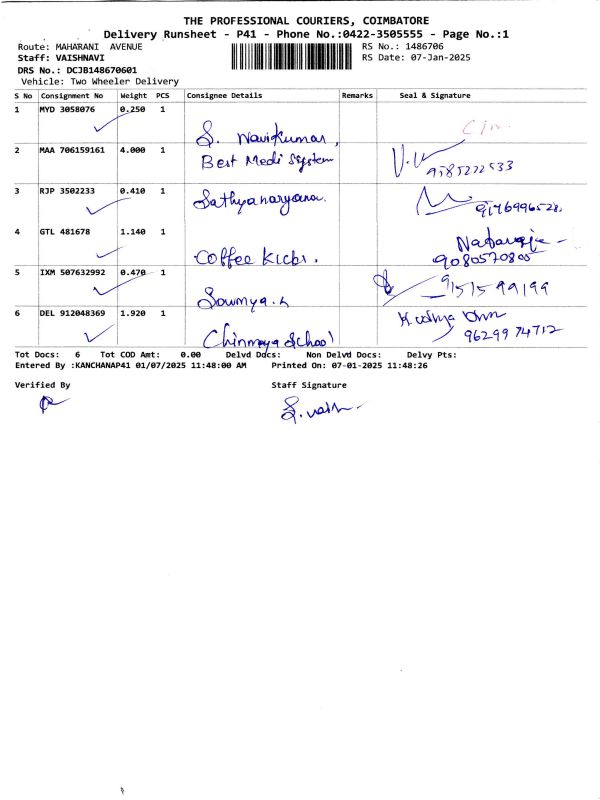 THE PROFESSIONAL COURIERS, COIMBATORE
Delivery Runsheet - P41 - Phone No.:0422-3505555 - Page No.:1
Route: MAHARANI AVENUE RS No.: 1486706
Staff: VAISHNAVI RS Date: 07-Jan-2025
DRS No.: DCJB148670601
Vehicle: Two Wheeler Delivery
S No Consignment No Weight PCS Consignee Details Remarks Seal & Signature
1 MYD 3058076 0.250 1 S. Navikumar,
2 MAA 706159161 4.000 1 Best Medi System 9585222533
3 RJP 3502233 0.410 1 Sathyanaryana. 9176996528
4 GTL 481678 1.140 1 Coffee Kicks. 9080570805
5 IXM 507632992 0.470 1 Sowmya. 9151599199
6 DEL 912048369 1.920 1 Chinmaya School 9629974712
Tot Docs: 6 Tot COD Amt: 0.00 Delvd Docs: Non Delvd Docs: Delvy Pts:
Entered By :KANCHANAP41 01/07/2025 11:48:00 AM Printed On: 07-01-2025 11:48:26
Verified By Staff Signature